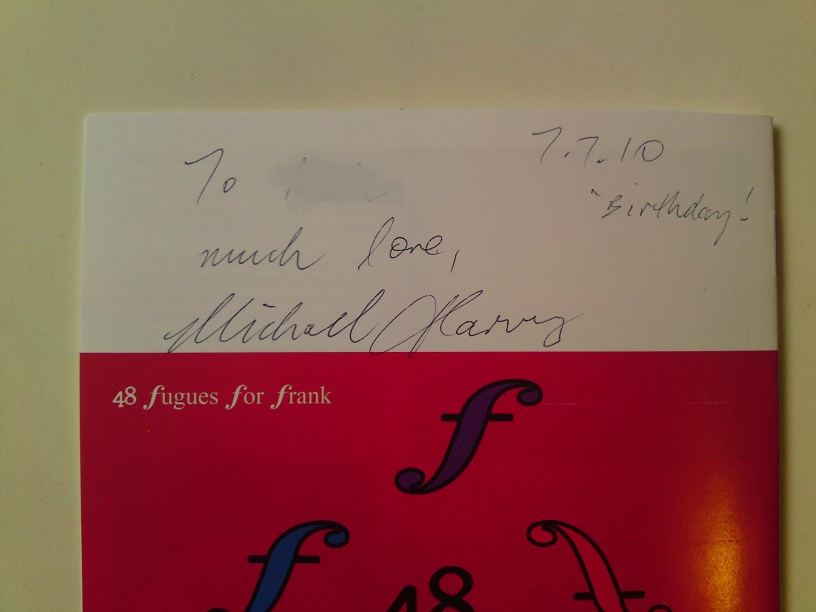 To
7.7.10
"Birthday!
much love,
Michael Harvey
48 fugues for frank
f
f
48
f